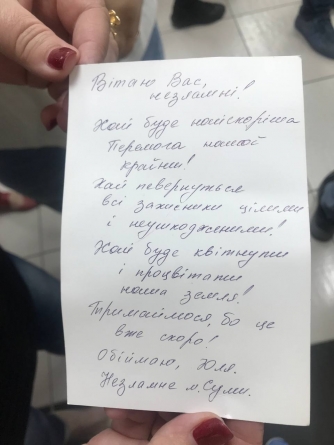 Вітаю Вас,
незламні!
Хай буде найскоріша
Перемога нашой
крайни!
Хай повернуться
всі захисники цілими
і неушкодженими!
Хай буде квітнути
і процвітати
наша земля!
Тримаймося, бо це
вже скоро!
Обіймаю, Юля.
Незламне м.Суми.